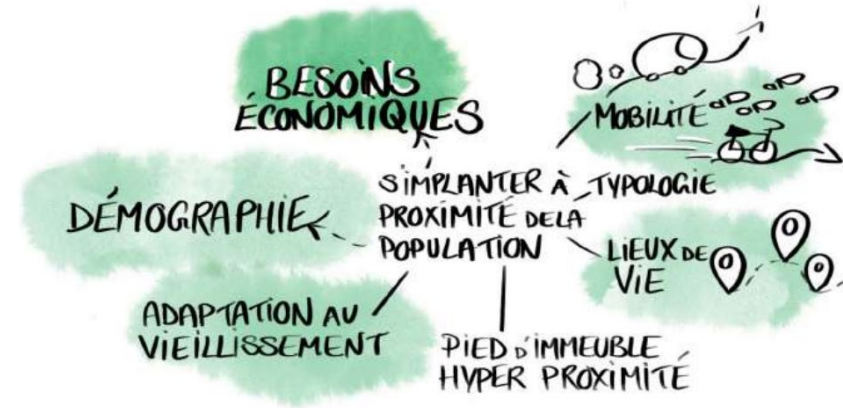 BESOINS
ÉCONOMIQUES
MOBILITÉ
DÉMOGRAPHIE
SIMPLANTER À
PROXIMITÉ DE LA
POPULATION
TYPOLOGIE
LIEUX DE
VIE
ADAPTATION AU
VIEILLISSEMENT
PIED D'IMMEUBLE
HYPER PROXIMITÉ